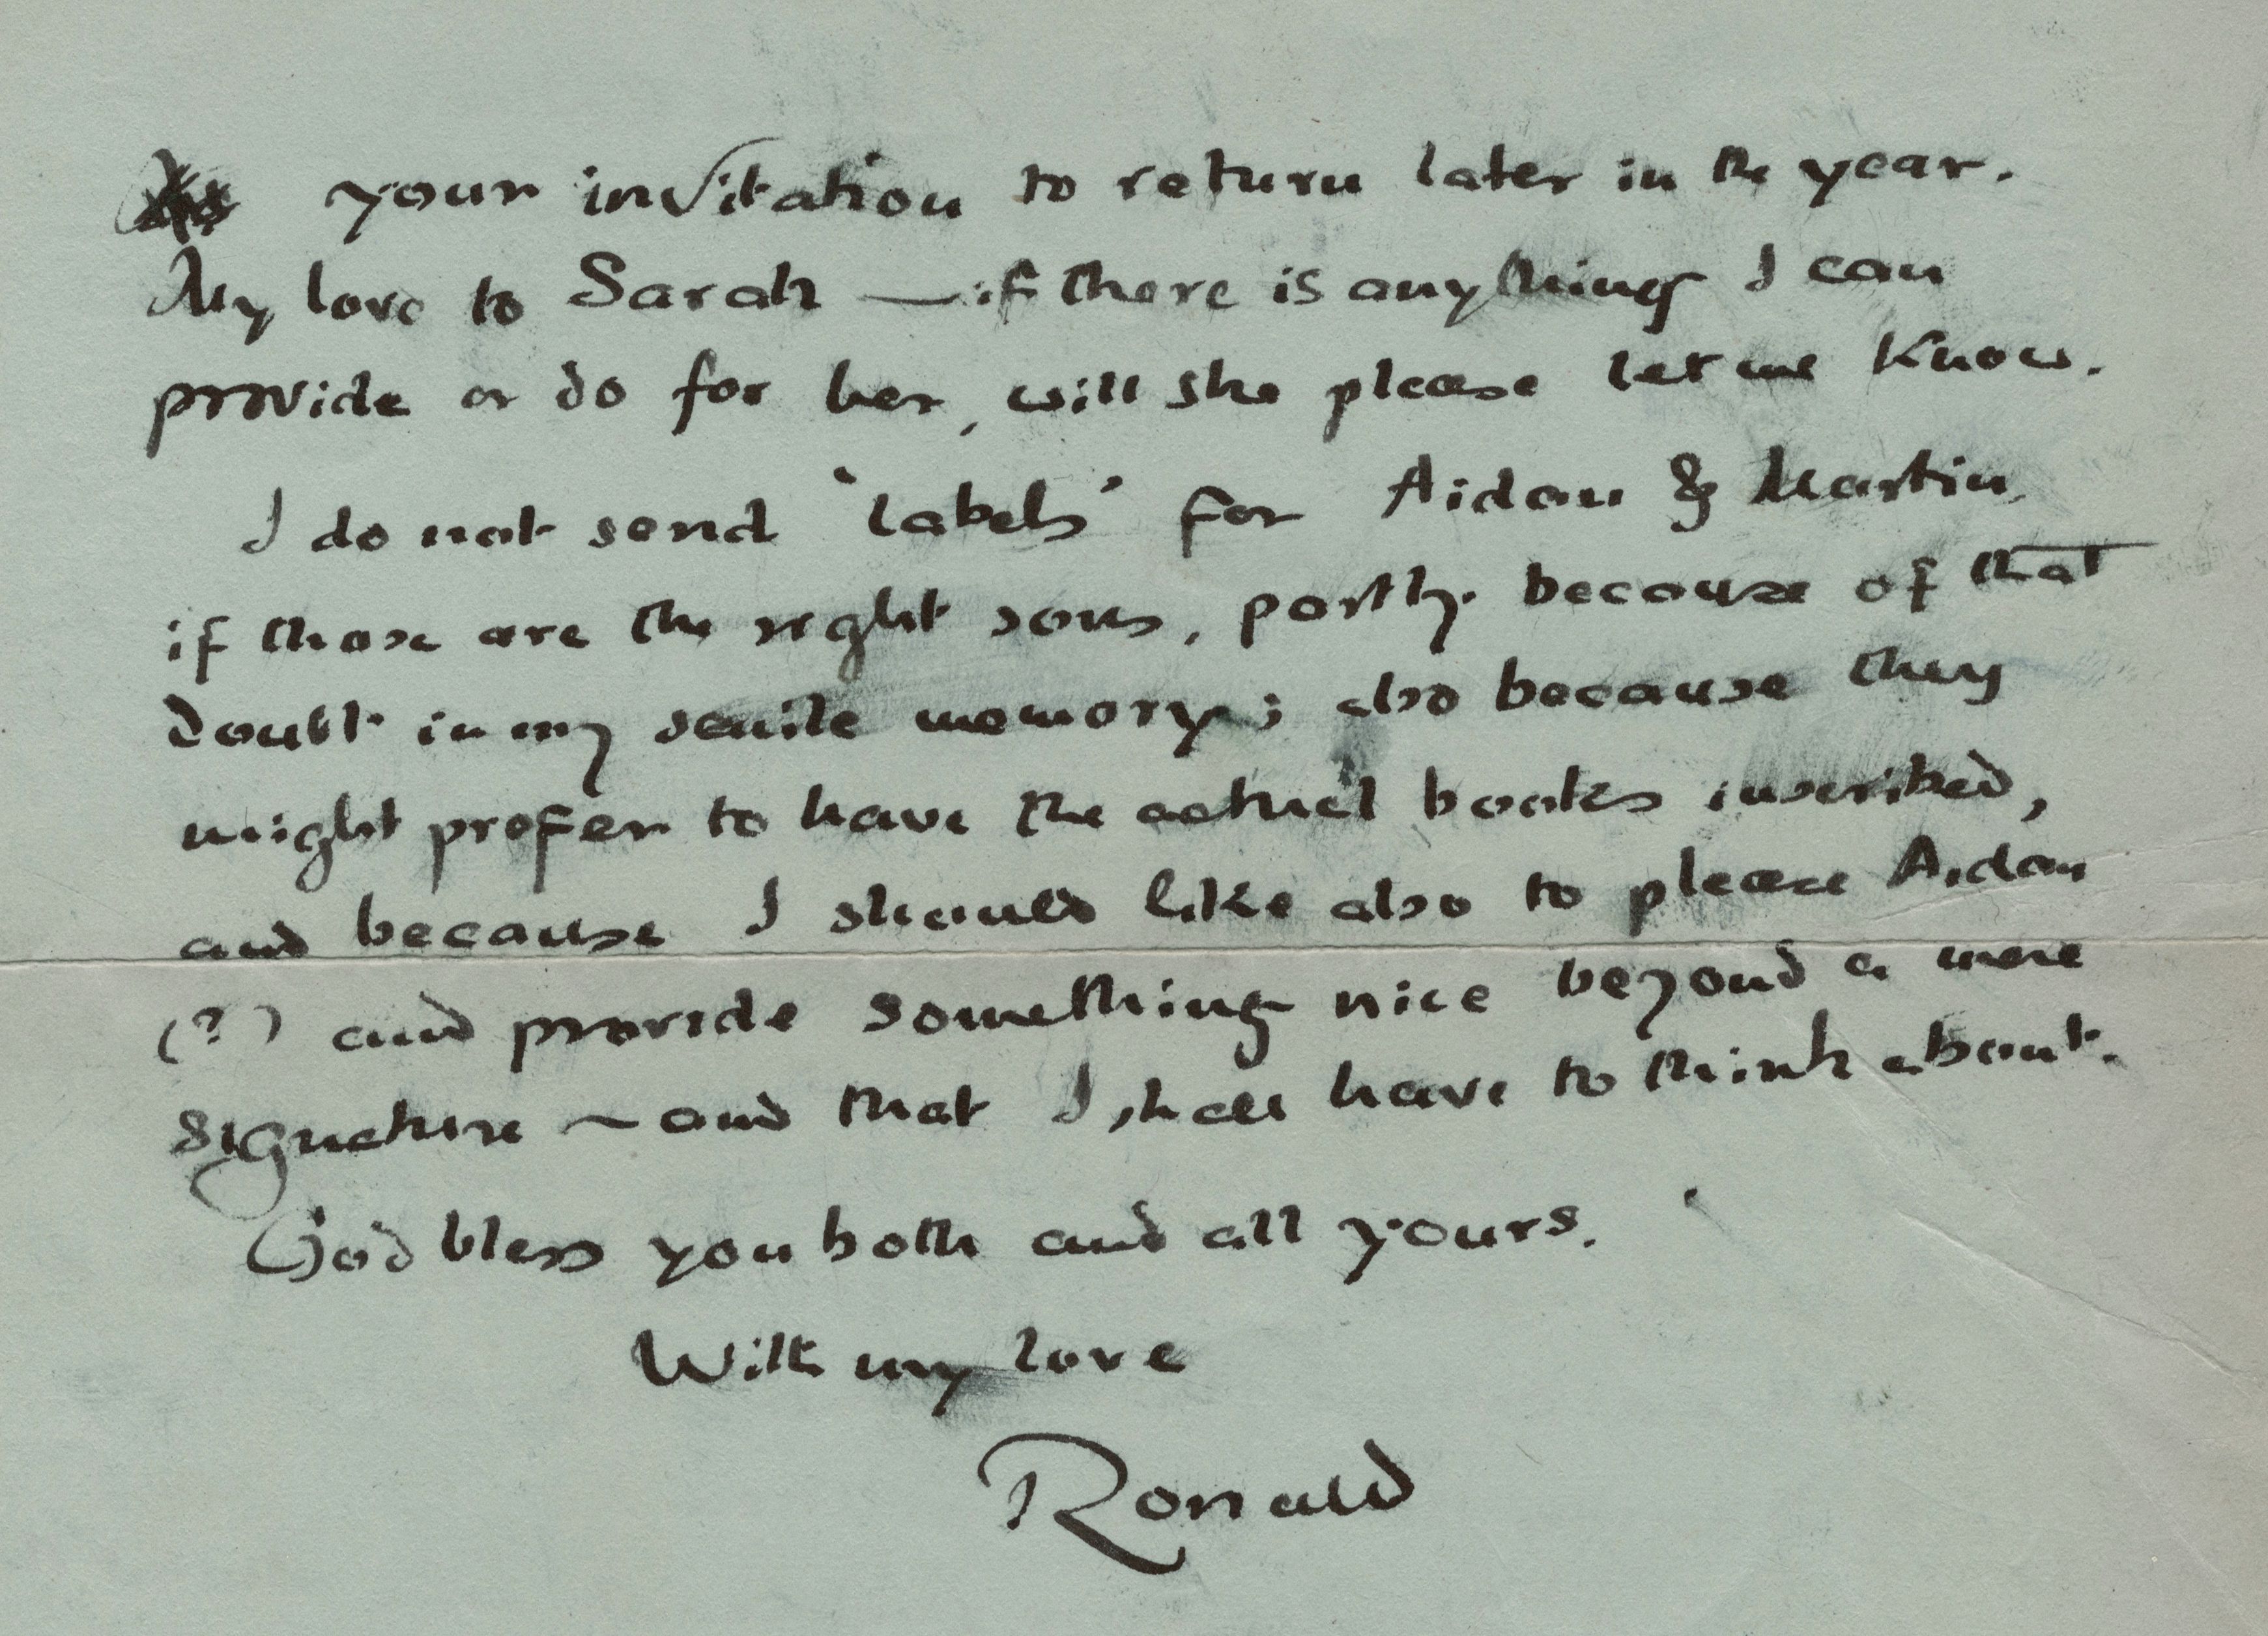 your invitation to return later in the year.
My love to Sarah — if there is anything I can
provide or do for her, will she please let me know.
I do not send 'labels' for Aidan & Martin,
if those are the right sons, partly because of that
doubt in my senile memory; also because they
might prefer to have the actual books inscribed,
and because I should like also to please Aidan
(?) and provide something nice beyond a mere
signature ~ and that I shall have to think about.
God bless you both and all yours.
With my love
Ronald